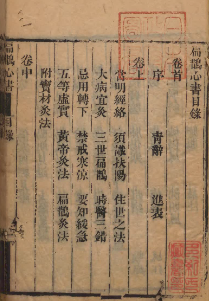 扁鵲心書目錄
卷首
序 青辭 進表
卷上
當明經絡 須識扶陽 住世之法
大病宜灸 三世扁鵲 時醫三錯
忌用轉下 禁戒寒涼 要知緩急
五等虛實 黃帝灸法 扁鵲灸法
附竇材灸法
卷中
扁鵲心書 目錄